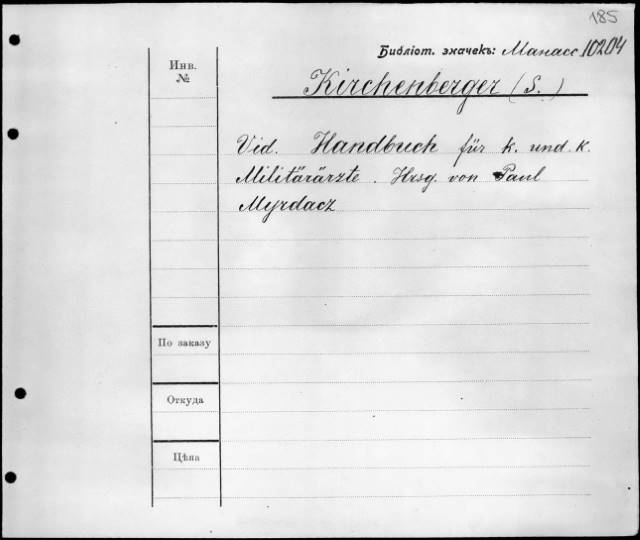 185
Библіот. значекъ: Манасс 10204
Инв. №
Kirchenberger (S.)
Vid. Handbuch für k. und. k.
Militärärzte. Hrsg. von Paul
Myrdacz
По заказу
Откуда
Цѣна